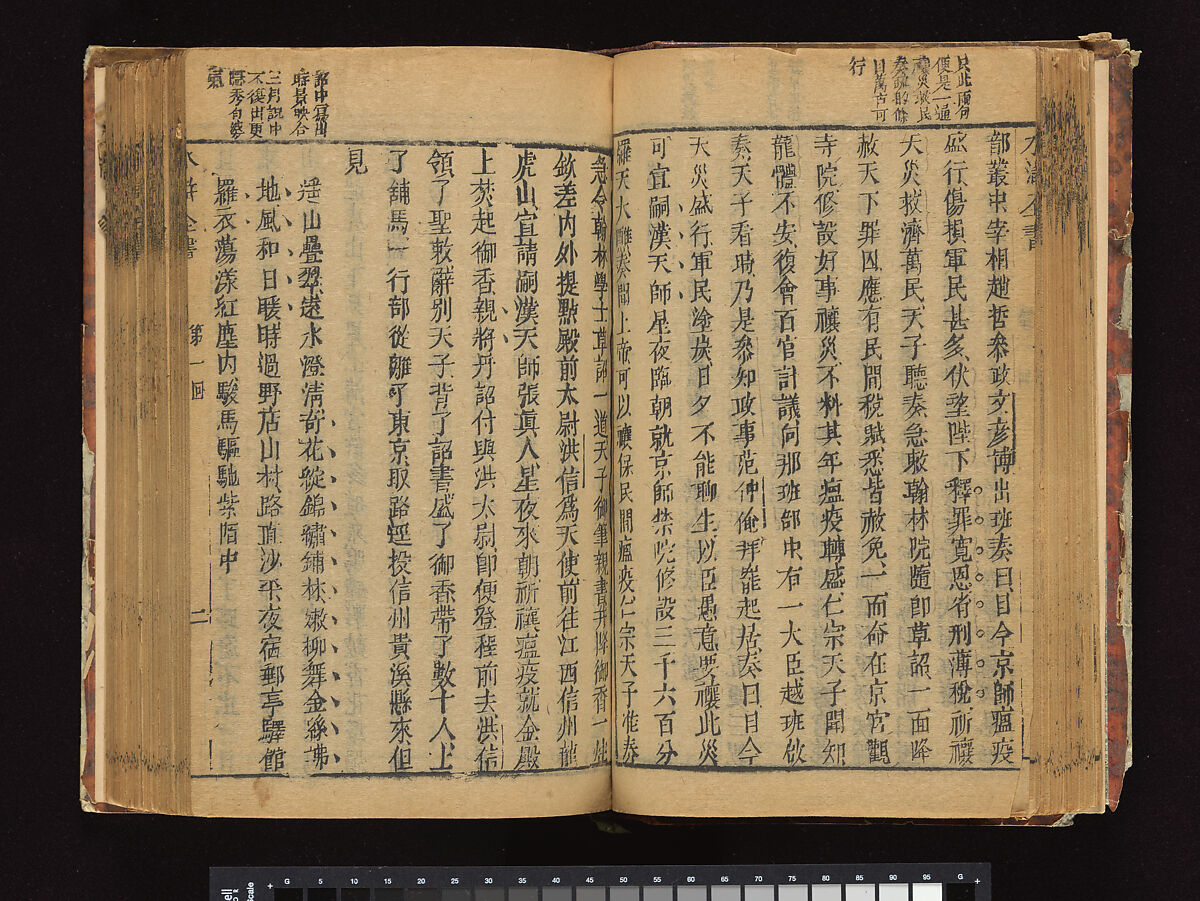 只此兩句
便是一通
救災恤民
奏疏的條
目萬古可
行
水滸全書
部叢中宰相趙哲參政文彥博出班奏曰目今京師瘟疫
盛行傷損軍民甚多伏望陛下釋罪寬恩省刑薄稅祈禳
天災救濟萬民天子聽奏急敕翰林院隨即草詔一面降
赦天下罪囚應有民間稅賦悉皆赦免一面命在京宮觀
寺院修設好事禳災不料其年瘟疫轉盛仁宗天子聞知
龍體不安復會百官計議向那班部中有一大臣越班啟
奏天子看時乃是參知政事范仲俺拜罷起居奏曰目今
天災盛行軍民塗炭日夕不能聊生以臣愚意要禳此災
可宣嗣漢天師星夜臨朝就京師禁院修設三千六百分
羅天大醮奏聞上帝可以禳保民間瘟疫仁宗天子准奏
急令翰林學士草詔一道天子御筆親書并降御香一炷
欽差內外提點殿前太尉洪信爲天使前往江西信州龍
虎山宣請嗣漢天師張眞人星夜來朝祈禳瘟疫就金殿
上焚起御香親將丹詔付與洪太尉即便登程前去洪信
領了聖敕辭別天子背了詔書盛了御香帶了數十人上
了鋪馬一行部從離了東京取路逕投信州貴溪縣來但
見
詔中寫出
時景映合
三月說中
不復出更
遙山疊翠遠水澄清奇花綻錦繡鋪林嫩柳舞金絲拂
地風和日暖時過野店山村路直沙平夜宿郵亭驛館
羅衣蕩漾紅塵內駿馬驅馳紫陌中
水滸全書 第一回 二